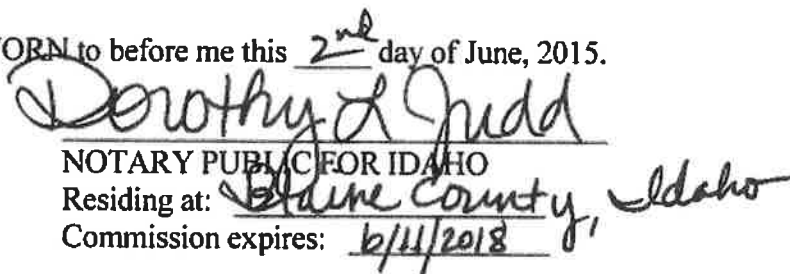 ORN to before me this 2nd day of June, 2015.
Dorothy L Judd
NOTARY PUBLIC FOR IDAHO
Residing at: Blaine County, Idaho
Commission expires: 6/11/2018